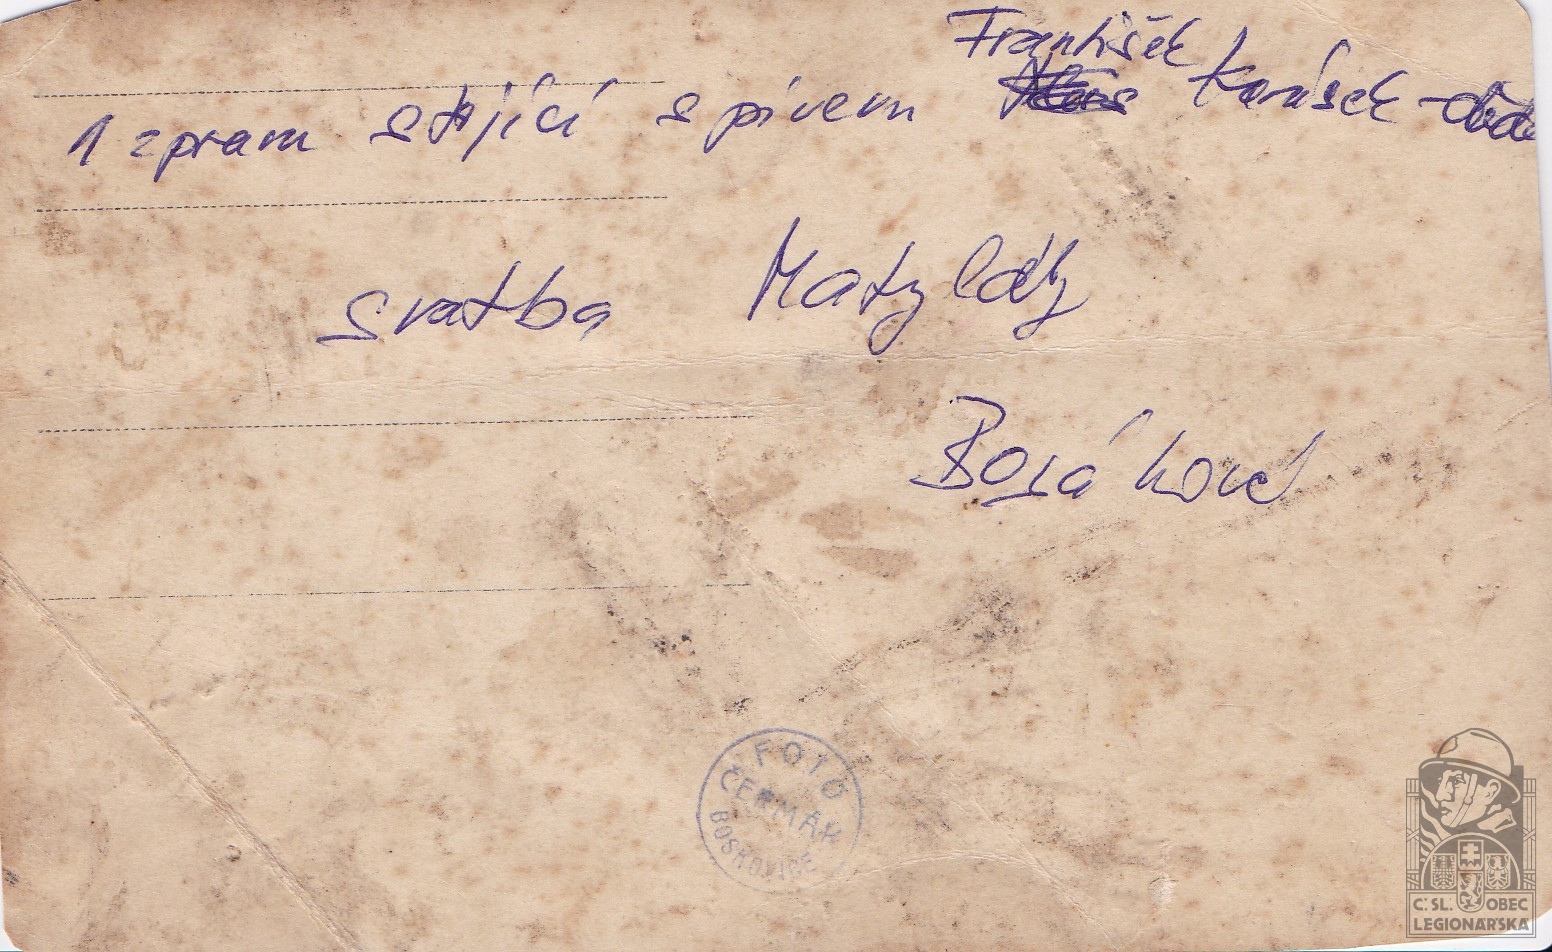 František
1 zprava stojící s pivem Karásek - děda
svatba Matyldy
Bosákové
FOTO
ČERMÁK
BOSKOVICE
Č. SL. OBEC
LEGIONÁŘSKÁ